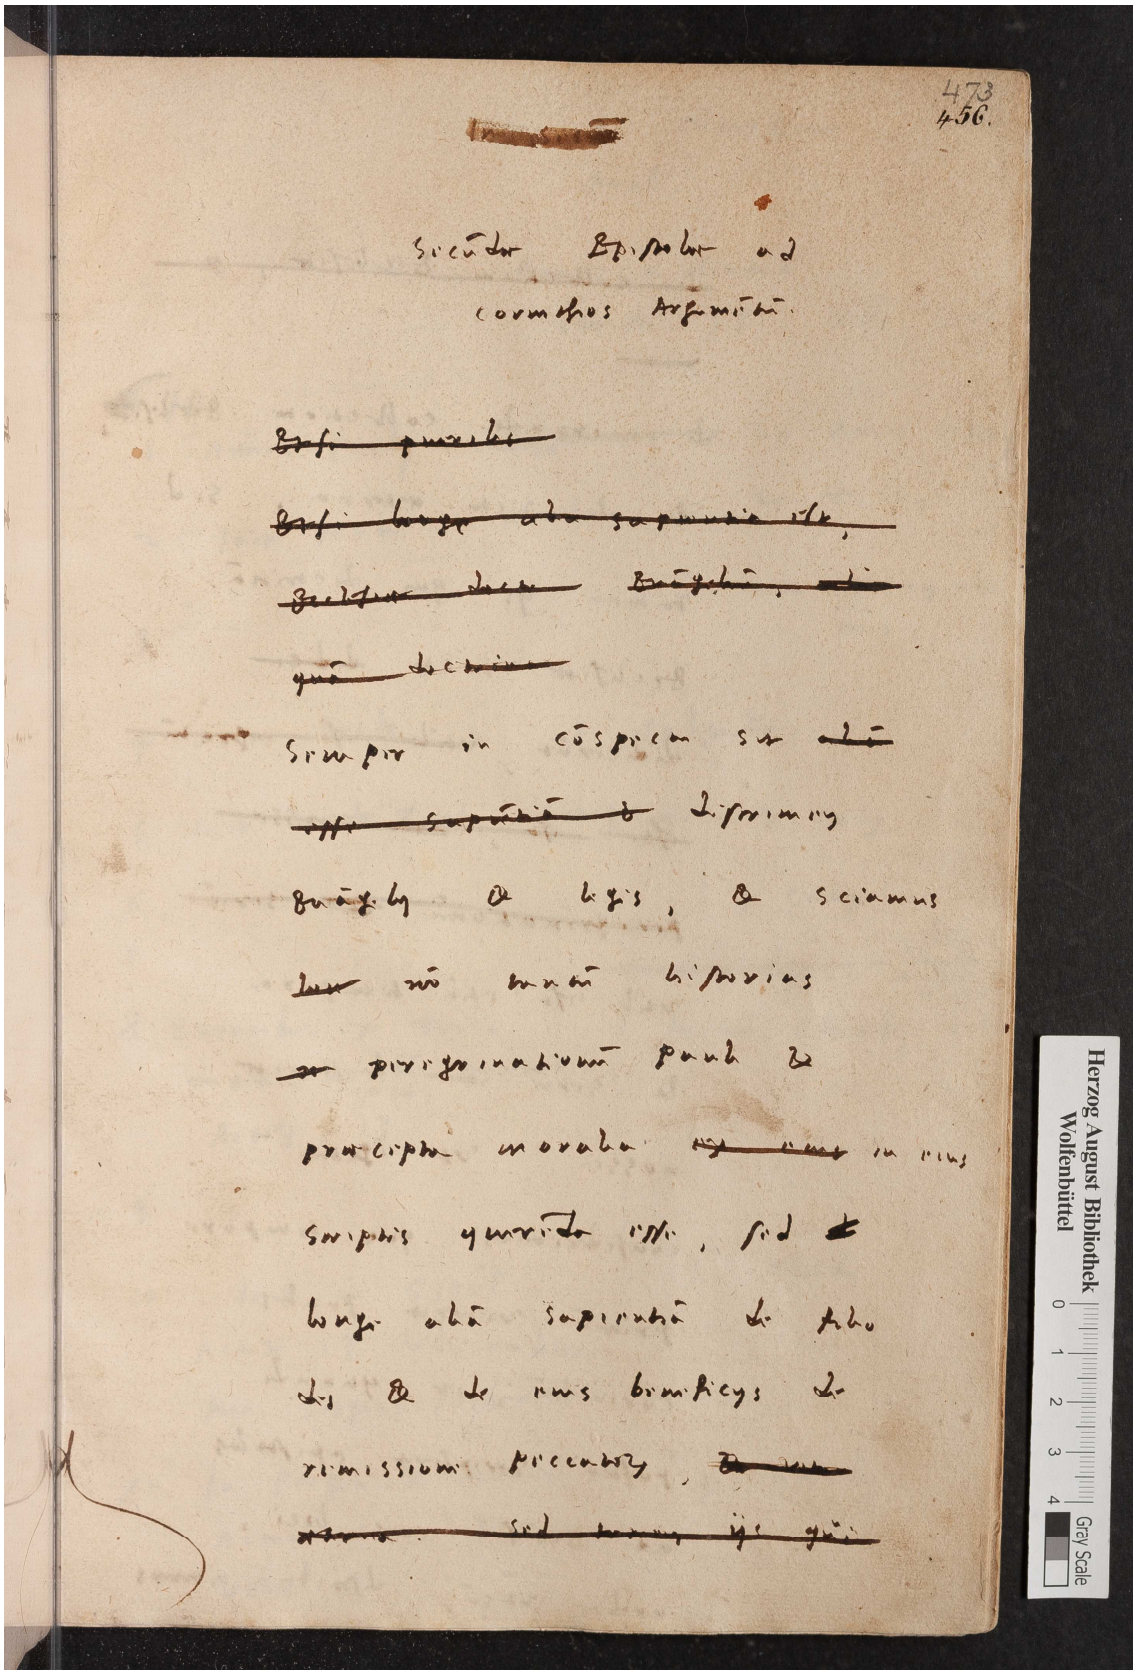 473
456.
Secūdae Epistolae ad
Corinthios Argumētū.
Etsi pueriles
Etsi longe alia sapientia est,
Ecclesiae Euāgeliū,
quā doctrina
Semper in cōspectu sit aliā
esse sapiētiā & discrimen
Euāgelij & legis, & sciamus
non tantū historias
peregrinationū Pauli &
praecepta moralia ex eius in eius
scriptis querēda esse, sed
longe aliā sapientiā de filio
dei & de eius beneficijs de
remissione peccatorū,
sed tamen ijs qui
Herzog August Bibliothek
Wolfenbüttel
0 1 2 3 4
Gray Scale